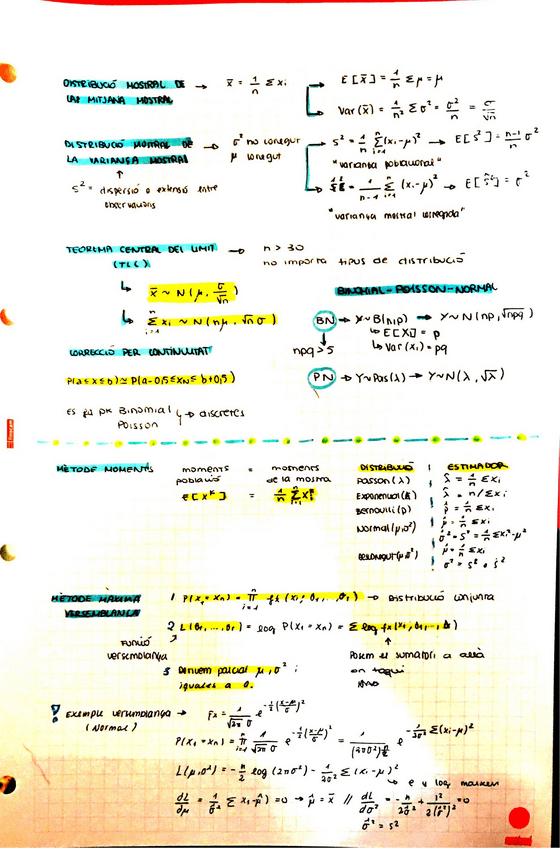 DISTRIBUCIÓ MOSTRAL DE LA MITJANA MOSTRAL → x̄ = 1/n Σxi → E[x̄] = 1/n Σμ = μ
Var(x̄) = 1/n² Σσ² = σ²/n = σ/√n
DISTRIBUCIÓ MOSTRAL DE LA VARIANÇA MOSTRAL → σ² no conegut
μ conegut
S² = 1/n Σ(xi-μ)² → E[S²] = n-1/n σ²
"variança poblacional"
1/n-1 Σ(xi-μ)² → E[ŝ²] = σ²
"variança mostral corregida"
S² = dispersió o extensió entre
observacions
TEOREMA CENTRAL DEL LIMIT → n > 30
(TLC)
no importa tipus de distribució
x̄ ~ N(μ, σ/√n)
Σxi ~ N(nμ, √n σ)
BINOMIAL-POISSON-NORMAL
BN → X~B(n,p) → Y~N(np, √npq)
npq>5
E[X] = p
Var(xi) = pq
CORRECCIÓ PER CONTINUITAT
P(a≤x≤b) ≃ P(a-0,5≤XN≤b+0,5)
PN → Y~Pois(λ) → Y~N(λ, √λ)
es fa pk Binomial
Poisson → discretes
MÈTODE MOMENTS
moments = moments
població de la mostra
E[X^k] = 1/n Σxi^k
DISTRIBUCIÓ ESTIMADOR
Poisson (λ) λ̂ = 1/n Σxi
Exponencial λ̂ = n/Σxi
Bernouilli (p) p̂ = 1/n Σxi
Normal (μ,σ²) μ̂ = 1/n Σxi
σ̂² = S² = 1/n Σxi²-μ²
μ̂ = 1/n Σxi
MÈTODE MÀXIMA VERSEMBLANÇA
1 P(x1...xn) = Π fx(xi; θ1,...,θr) → Distribució conjunta
2 L(θ1,...,θr) = log P(x1...xn) = Σ log fx
Funció
versemblança
Posem el sumatori a allà
on toqui
3 Derivem parcial μ, σ² i
igualem a 0.
! Exemple versemblança →
(Normal)
Fx = 1/√2π σ e^-½(x-μ/σ)²
P(x1...xn) = Π 1/√2π σ e^-½(x-μ/σ)² = 1/(2πσ²)^n/2 e^-1/2σ² Σ(xi-μ)²
L(μ,σ²) = -n/2 log(2πσ²) - 1/2σ² Σ(xi-μ)²
e y log marxen
dL/dμ = 1/σ² Σ xi-μ̂ = 0 → μ̂ = x̄ // dL/dσ² = -n/2σ̂² + 1²/2(σ̂²)² = 0
σ̂² = S²